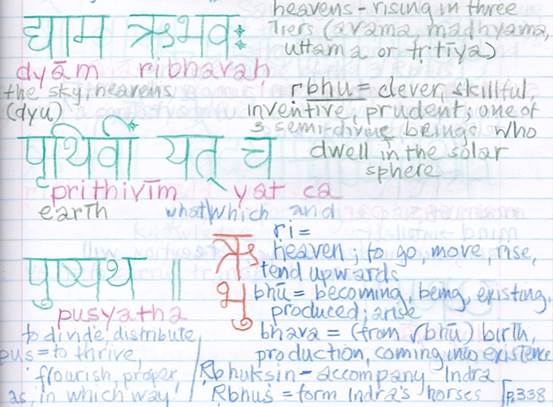 heavens - rising in three
Tiers (avama, madhyama,
uttama or tṛtīya)
द्याम ऋभवः
dyām ribhavaḥ
the sky, heavens
(dyu)
ṛbhu = clever, skillful,
inventive, prudent; one of
3 semi-divine beings who
dwell in the solar
sphere
पृथिवीं यत् च
prithivīm yat ca
earth what which and
पुष्यथ ॥
pusyatha
ऋ
भु
ri =
heaven; to go, move, rise,
tend upwards
bhū = becoming, being, existing,
produced; arise
bhava = (from √bhū) birth,
production, coming into existence
Ṛbhuksin - accompany Indra
Ṛbhus = form Indra's horses p.338
to divide, distribute
pus = to thrive,
flourish, proper
as, in which way